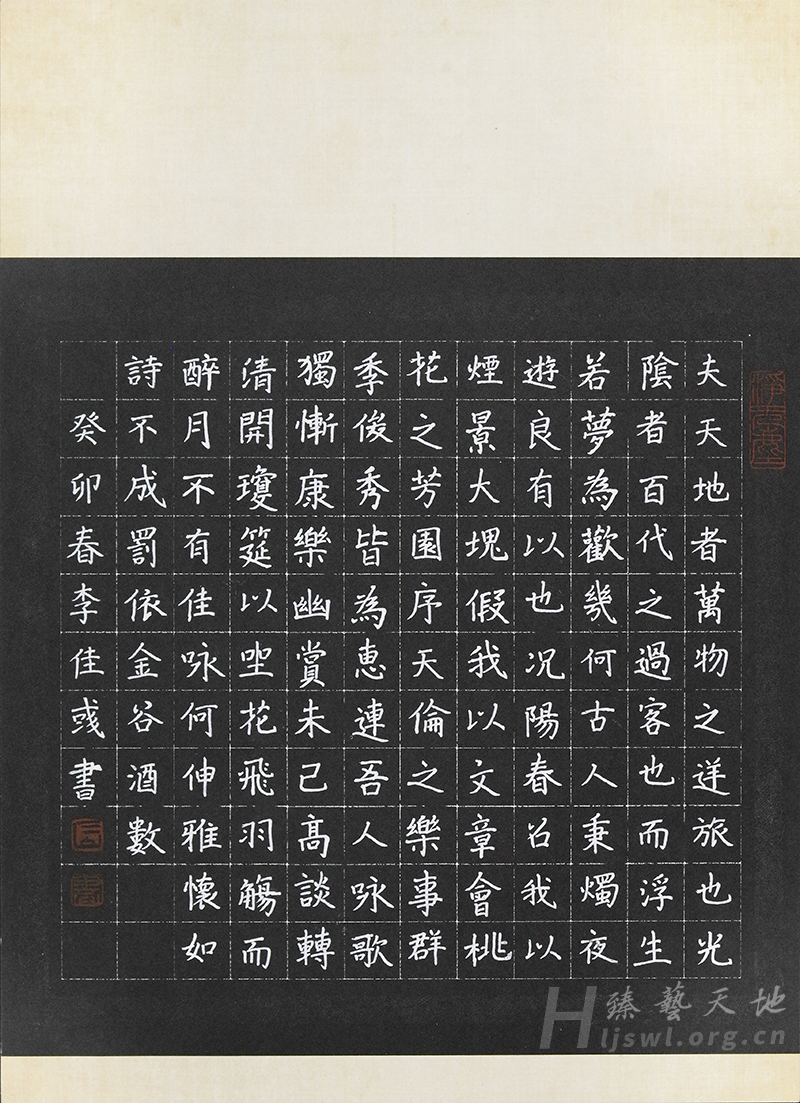 夫天地者萬物之逆旅也光
陰者百代之過客也而浮生
若夢為歡幾何古人秉燭夜
遊良有以也況陽春召我以
煙景大塊假我以文章會桃
花之芳園序天倫之樂事群
季俊秀皆為惠連吾人咏歌
獨慚康樂幽賞未已高談轉
清開瓊筵以坐花飛羽觴而
醉月不有佳咏何伸雅懷如
詩不成罰依金谷酒數
癸卯春李佳彧書
臻藝天地
Hljswl.org.cn